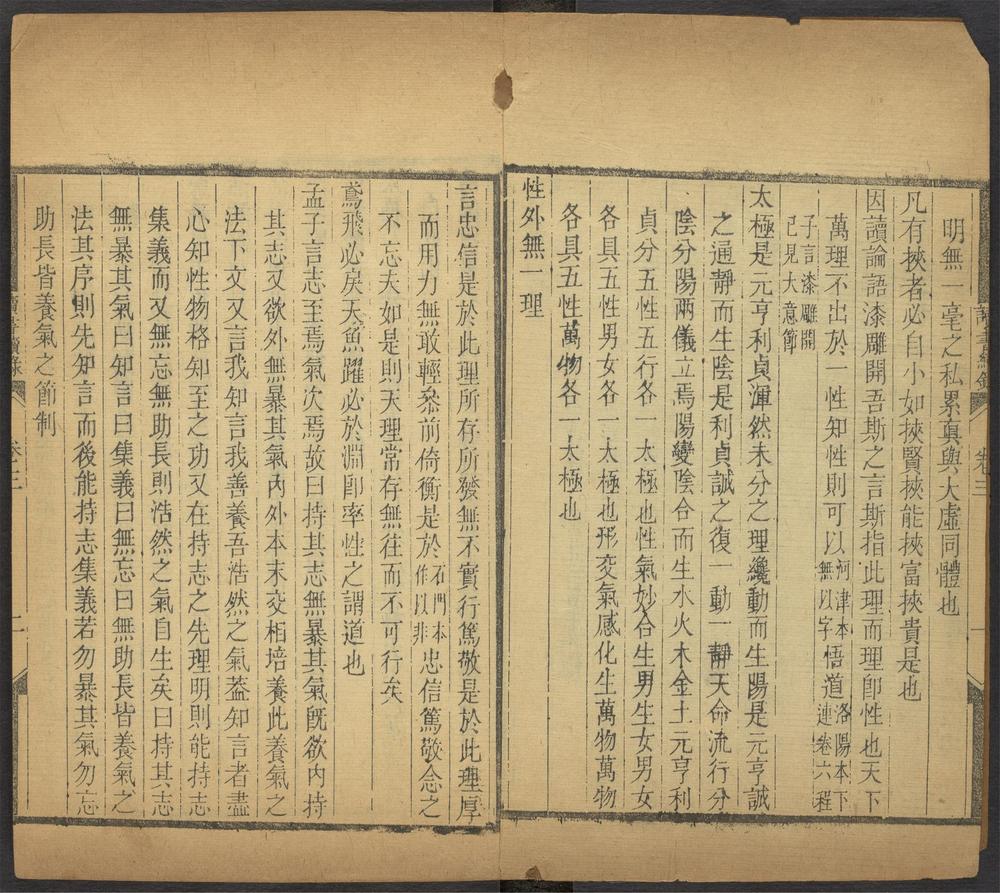 明無一毫之私累真與大虛同體也
凡有挾者必自小如挾賢挾能挾富挾貴是也
因讀論語漆雕開吾斯之言斯指此理而理卽性也天下
萬理不出於一性知性則可以河津本無以字悟道洛陽本下連卷六程
子言漆雕開已見大意節
太極是元亨利貞渾然未分之理纔動而生陽是元亨誠
之通靜而生陰是利貞誠之復一動一靜天命流行分
陰分陽兩儀立焉陽變陰合而生水火木金土元亨利
貞分五五行各一太極也性氣妙合生男生女男女
各具五性男女各一太極也形交氣感化生萬物萬物
各具五性萬物各一太極也
性外無一理
言忠信是於此理所存所發無不實行篤敬是於此理厚
而用力無敢輕忝前倚衡是於石門本作以非忠信篤敬念念之
不忘夫如是則天理常存無徃而不可行矣
鳶飛必戾天魚躍必於淵卽率性之謂道也
孟子言志至焉氣次焉故曰持其志無暴其氣旣欲內持
其志又欲外無暴其氣內外本末交相培養此養氣之
法下文又言我知言我善養吾浩然之氣蓋知言者盡
心知性物格知至之功又在持志之先理明則能持志
集義而又無忘無助長則浩然之氣自生矣曰持其志
無暴其氣曰知言曰集義曰無忘曰無助長皆養氣之
法其序則先知言而後能持志集義若勿暴其氣勿忘
助長皆養氣之節制
讀書續錄
卷三
二